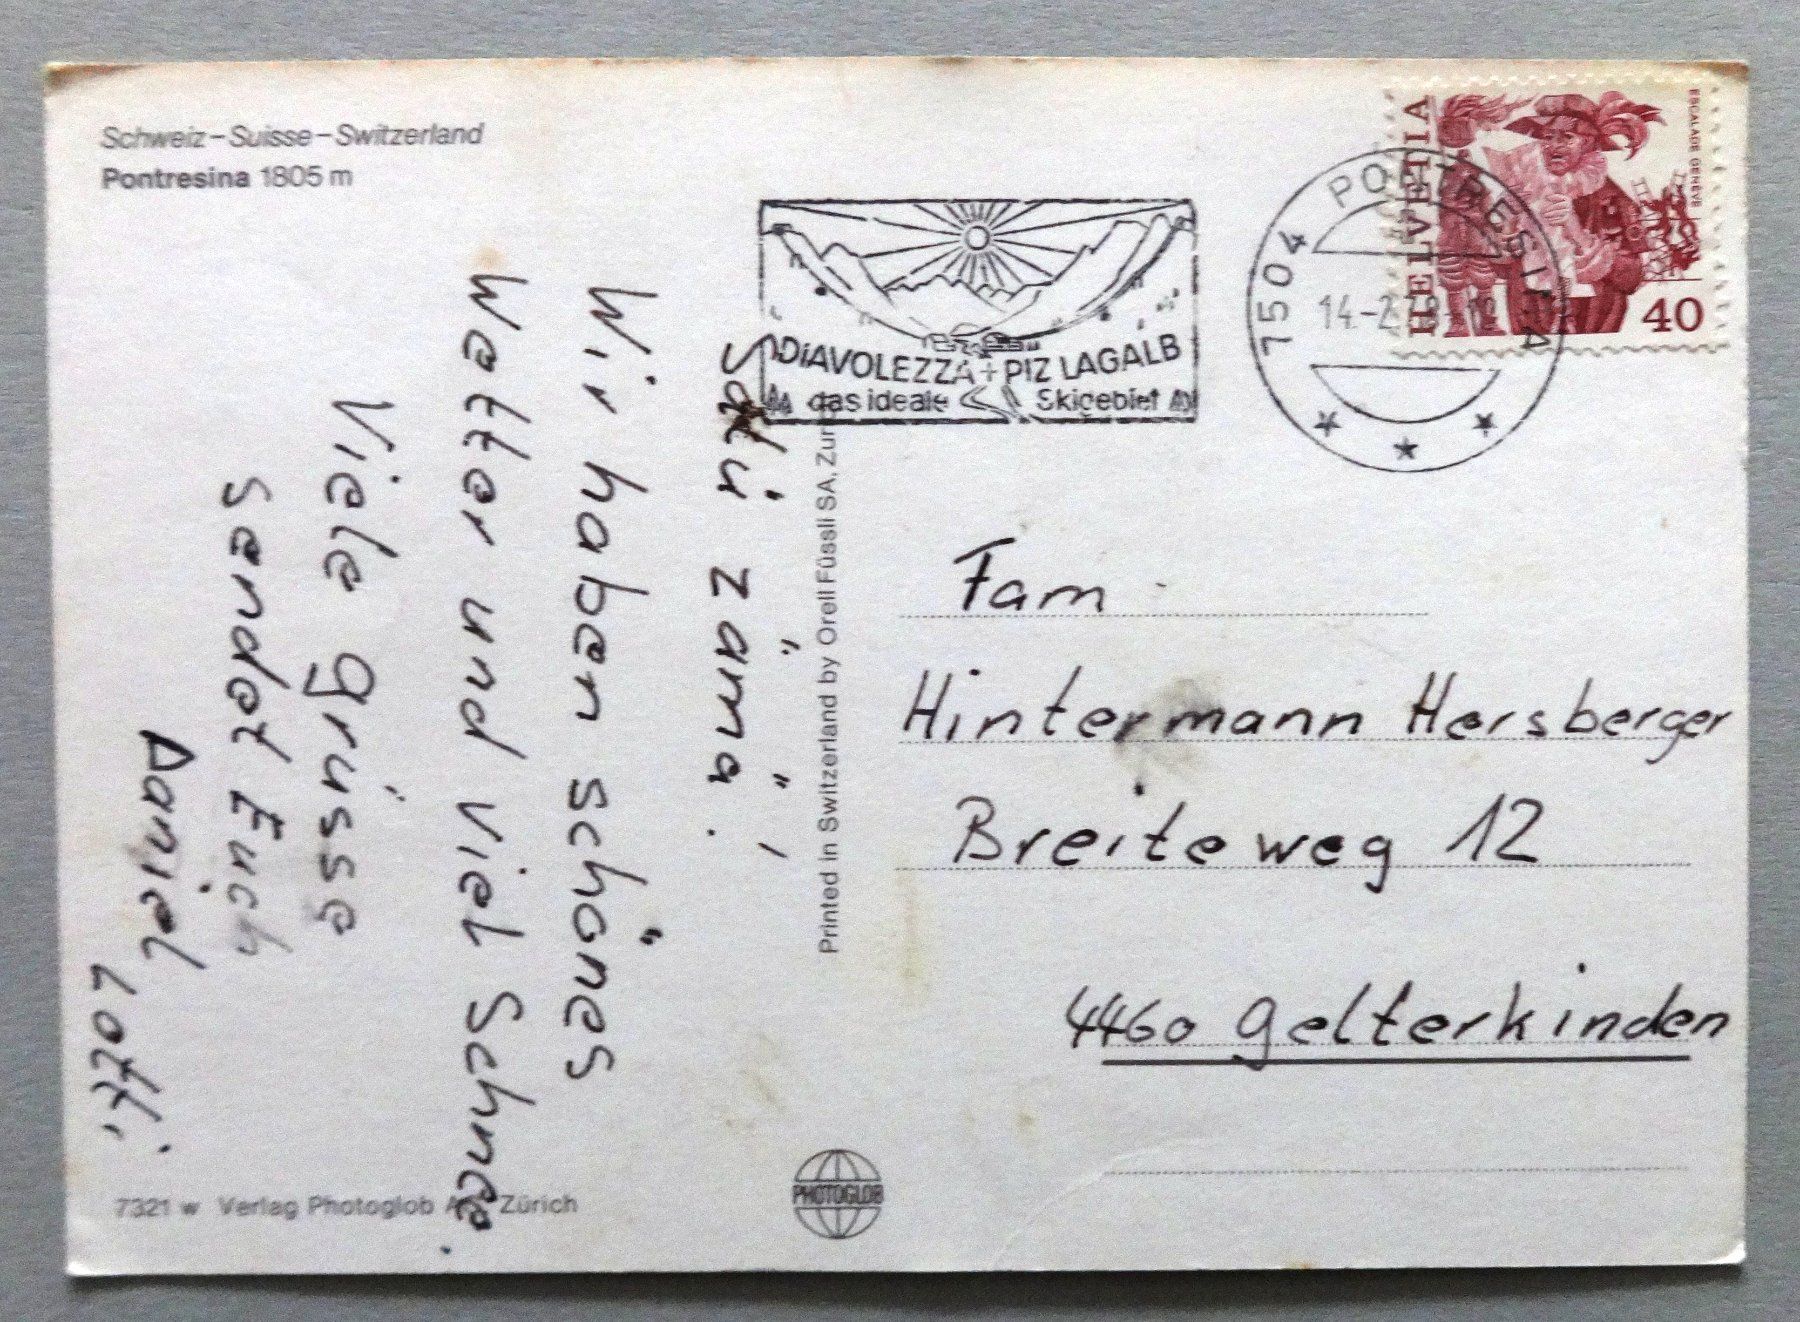 Schweiz – Suisse – Switzerland
Pontresina 1805 m
Wir haben schönes
Wetter und viel Schnee.
Viele grüsse
sendet Euch
Daniel
7321 w Verlag Photoglob Zürich
Printed in Switzerland by Orell Füssli SA,
PHOTOGLOB
DiAVOLEZZA + PIZ LAGALB
das ideale Skigebiet
7504 PONTRESINA
HELVETIA
ESCALADE GENÈVE
40
Fam
Hintermann Hersberger
Breiteweg 12
4460 Gelterkinden